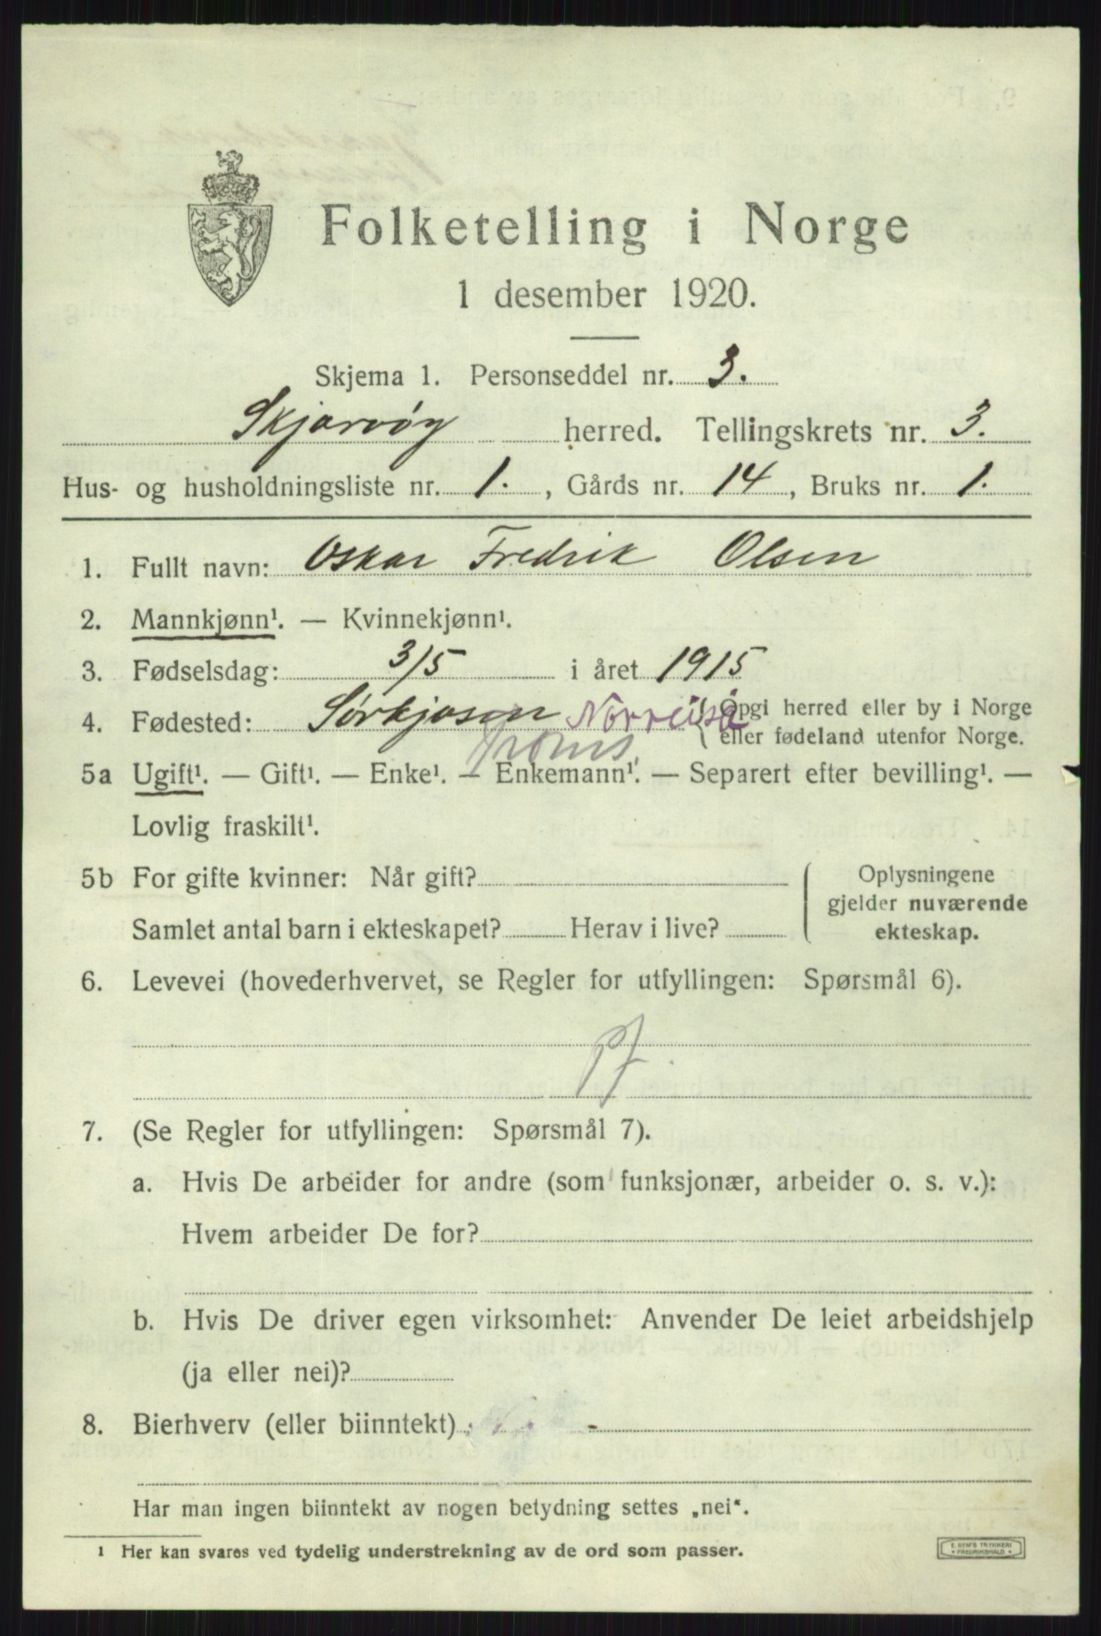 Folketelling i Norge
1 desember 1920.
Skjema 1. Personseddel nr. 3.
Skjervøy herred. Tellingskrets nr. 3.
Hus- og husholdningsliste nr. 1. , Gårds nr. 14 , Bruks nr. 1.
1. Fullt navn: Oskar Fredrik Olsen
2. Mannkjønn¹. — Kvinnekjønn¹.
3. Fødselsdag: 3/5 i året 1915
4. Fødested: Sørkjosen Norreisa Opgi herred eller by i Norge
eller fødeland utenfor Norge.
Troms
5a Ugift¹. — Gift¹. — Enke¹. — Enkemann¹. — Separert efter bevilling¹. —
Lovlig fraskilt¹.
5b For gifte kvinner: Når gift?
Samlet antal barn i ekteskapet? Herav i live?
Oplysningene
gjelder nuværende
ekteskap.
6. Levevei (hovederhvervet, se Regler for utfyllingen: Spørsmål 6).
7. (Se Regler for utfyllingen: Spørsmål 7).
a. Hvis De arbeider for andre (som funksjonær, arbeider o. s. v.):
Hvem arbeider De for?
b. Hvis De driver egen virksomhet: Anvender De leiet arbeidshjelp
(ja eller nei)?
8. Bierhverv (eller biinntekt) -
Har man ingen biinntekt av nogen betydning settes „nei“.
¹ Her kan svares ved tydelig understrekning av de ord som passer.